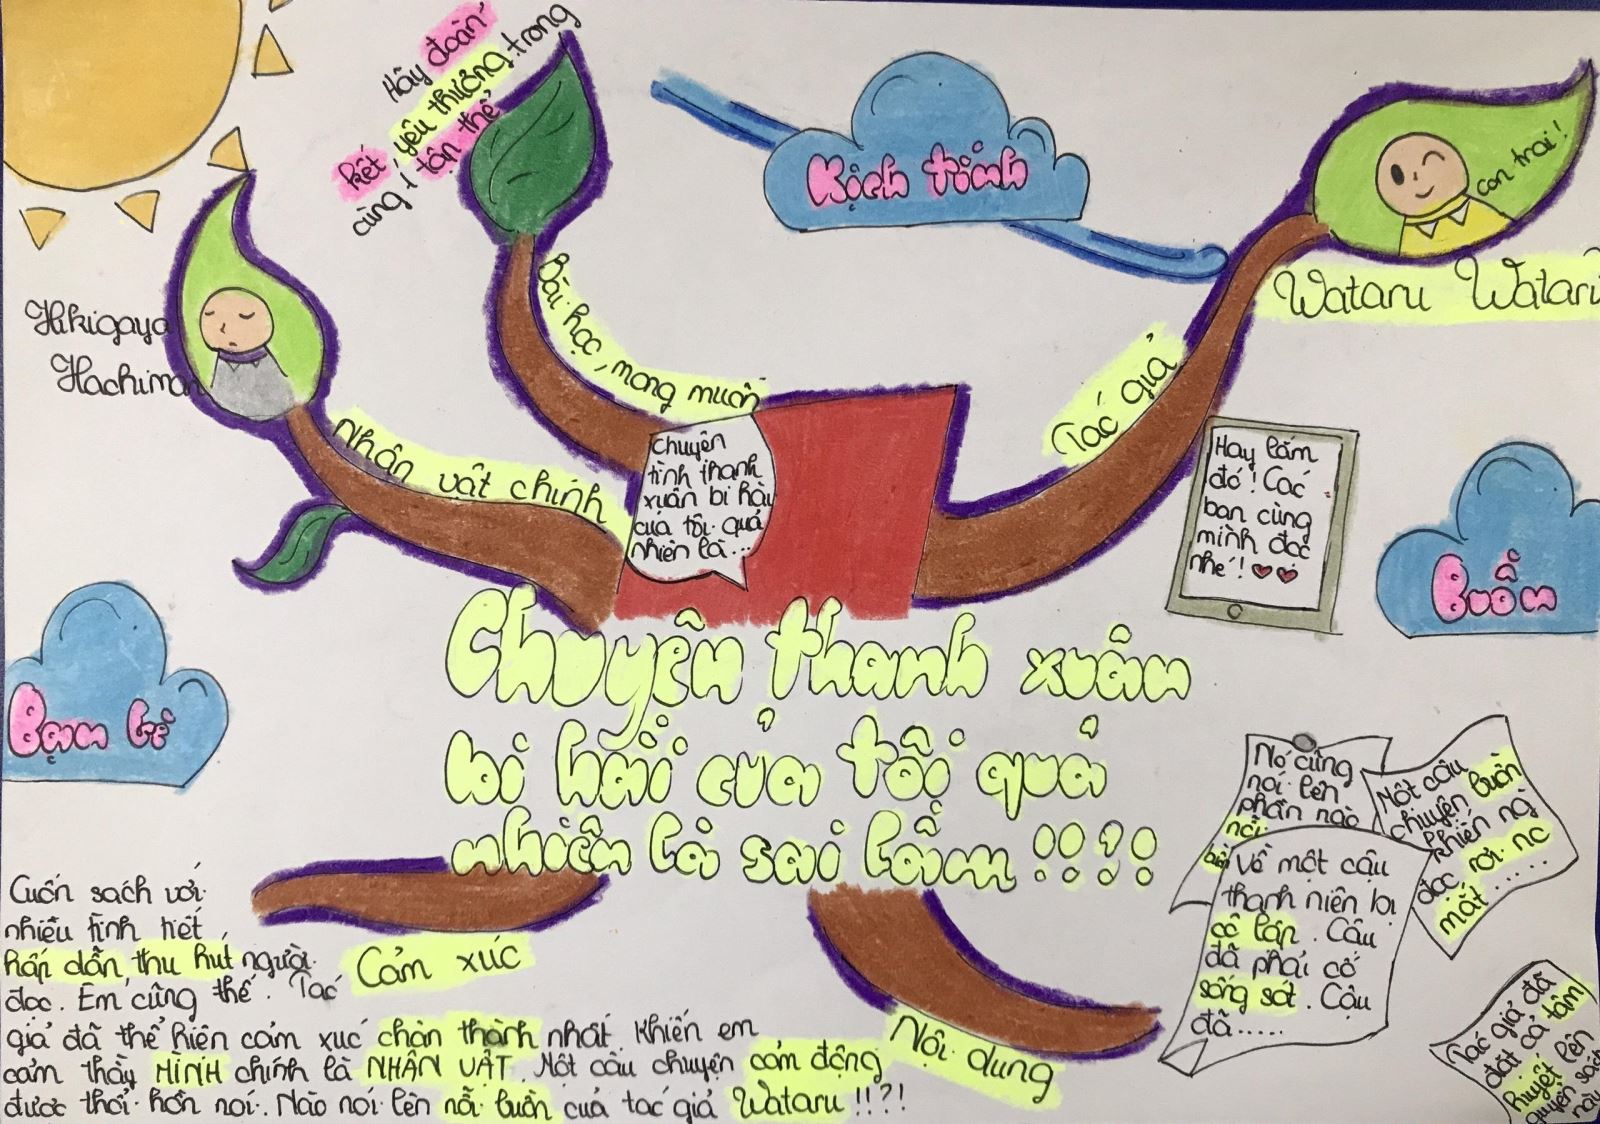 Hãy đoàn
kết yêu thương trong
cùng 1 tập thể
Kịch tính
con trai!
Wataru Watari
Hikigaya
Hachiman
Bài học, mong muốn
Tác giả
Nhân vật chính
Chuyện
tình thanh
xuân bi hài
của tôi quả
nhiên là...
Hay lắm
đó! Các
bạn cùng
mình đọc
nhé!
Buồn
Bạn bè
Chuyện thanh xuân
bi hài của tôi quả
nhiên là sai lầm !!!!
Nó cũng
nói lên
phần nào
nỗi
Một câu
chuyện buồn
khiến ng
đọc rơi nc
mắt.....
Về một cậu
thanh niên bị
cô lập. Cậu
đã phải cố
sống sót. Cậu
đã.....
Tác giả đã
đặt cả tâm
huyết lên
quyển sách
này
Cuốn sách với
nhiều tình tiết
hấp dẫn thu hút người
đọc. Em cũng thế. Tác
giả đã thể hiện cảm xúc chân thành nhất. Khiến em
cảm thấy MÌNH chính là NHÂN VẬT. Một câu chuyện cảm động
được thổi hồn nơi. Nào nói lên nỗi buồn của tác giả Wataru !!?!
Cảm xúc
Nội dung